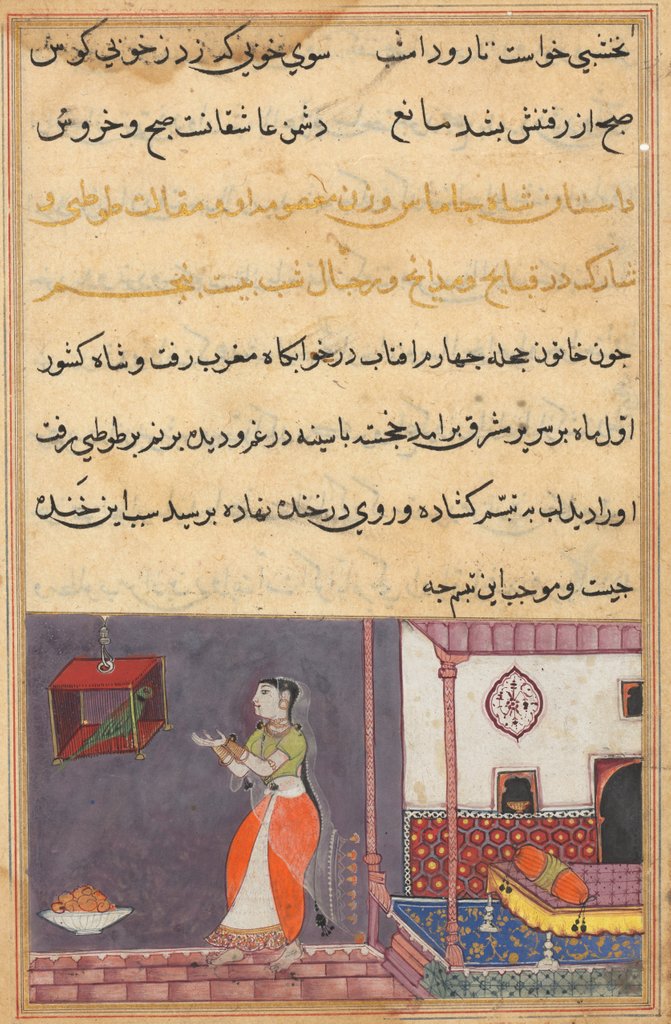 نخشبي خواست تا رود امشب سوي خوبي که زد ز خوبي کوس
صبح از رفتنش بشد مانع دشمن عاشقانست صبح و خروس
داستان شاه جاماس و زن معصوم او و مقالت طوطي و
شارک در قبايح و مدائح رجال شب بيست پنجم
چون خاتون حجله چهارم افتاب در خوابکاه مغرب رفت و شاه کشور
اول ماه بر سرير مشرق برامد خجسته با سينه در غم و ديده بر نم بر طوطي رفت
او را ديد لب به تبسم کشاده و روي در خنده نهاده پرسيد سبب اين خنده
چيست و موجب اين تبسم چه